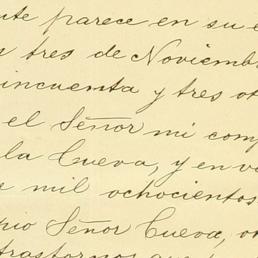 nte parece en su e
n tres de Noviembr
incuenta y tres o
el Señor mi comp
la Cueva, y en v
e mil ochocientos
pio Señor Cueva, o
trastornos que